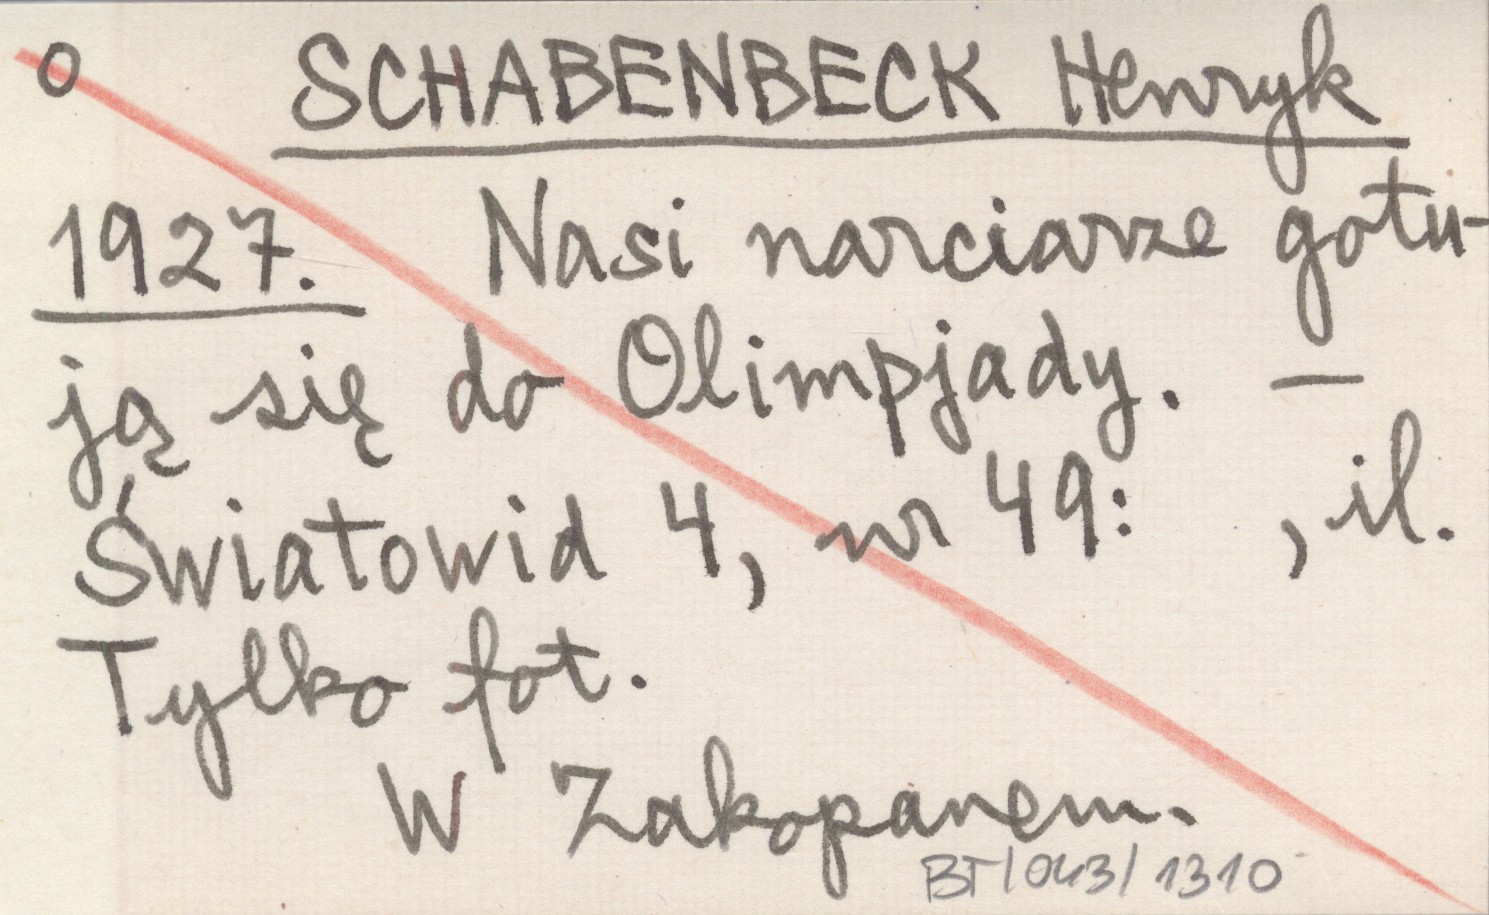 o SCHABENBECK Henryk
1927. Nasi narciarze gotu-
ją się do Olimpjady. —
Światowid 4, nr 49: , il.
Tylko fot.
W Zakopanem.
BT/043/1310